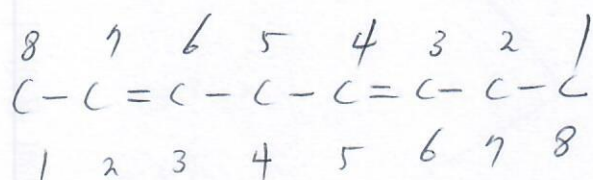 8 7 6 5 4 3 2 1
C - C = C - C - C = C - C - C
1 2 3 4 5 6 7 8